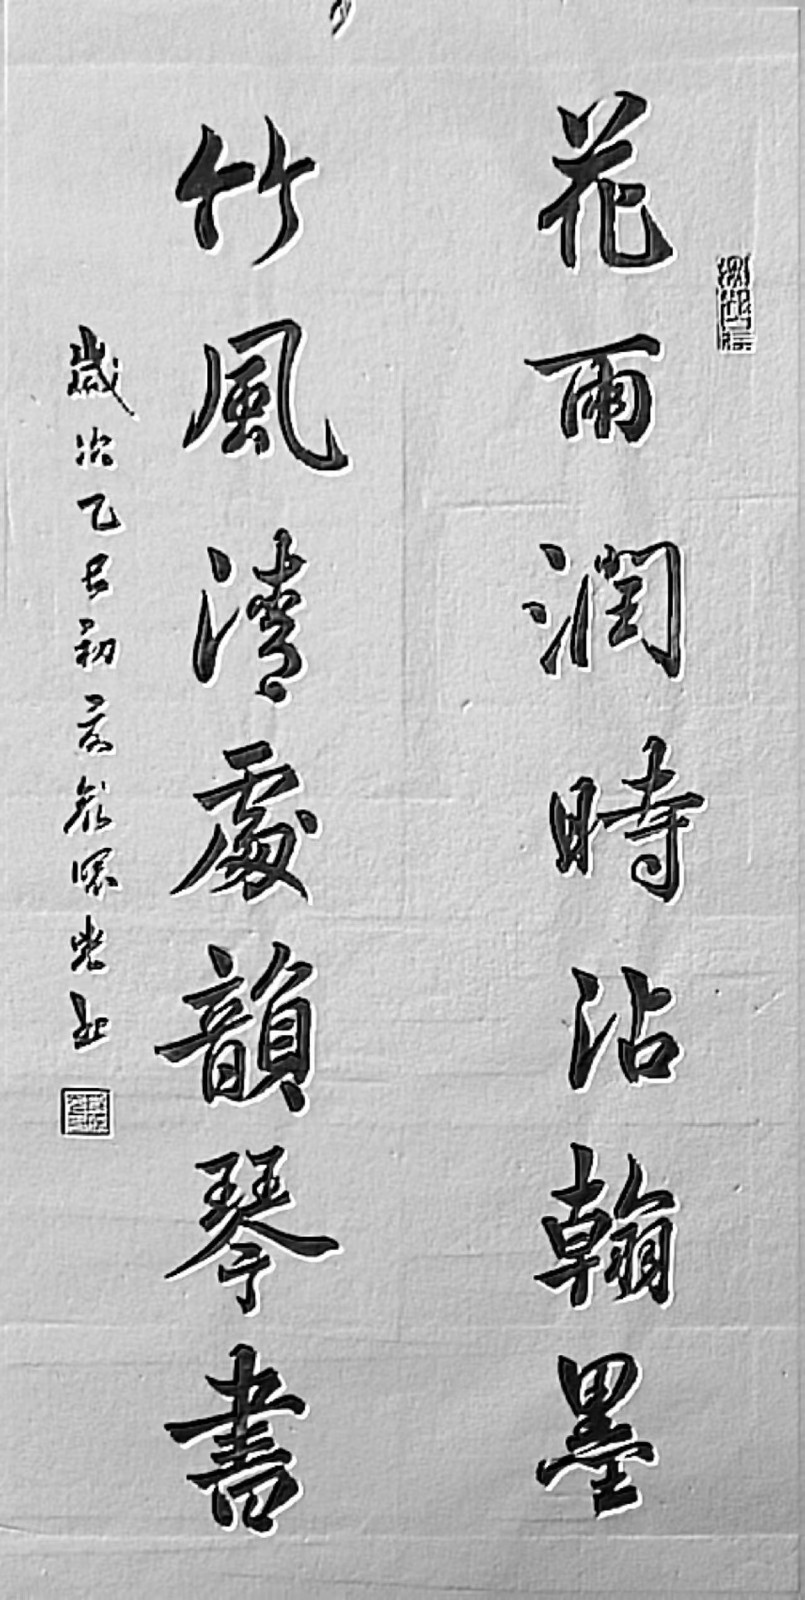 花雨潤時沾翰墨
竹風清處韻琴書
歲次乙巳初夏